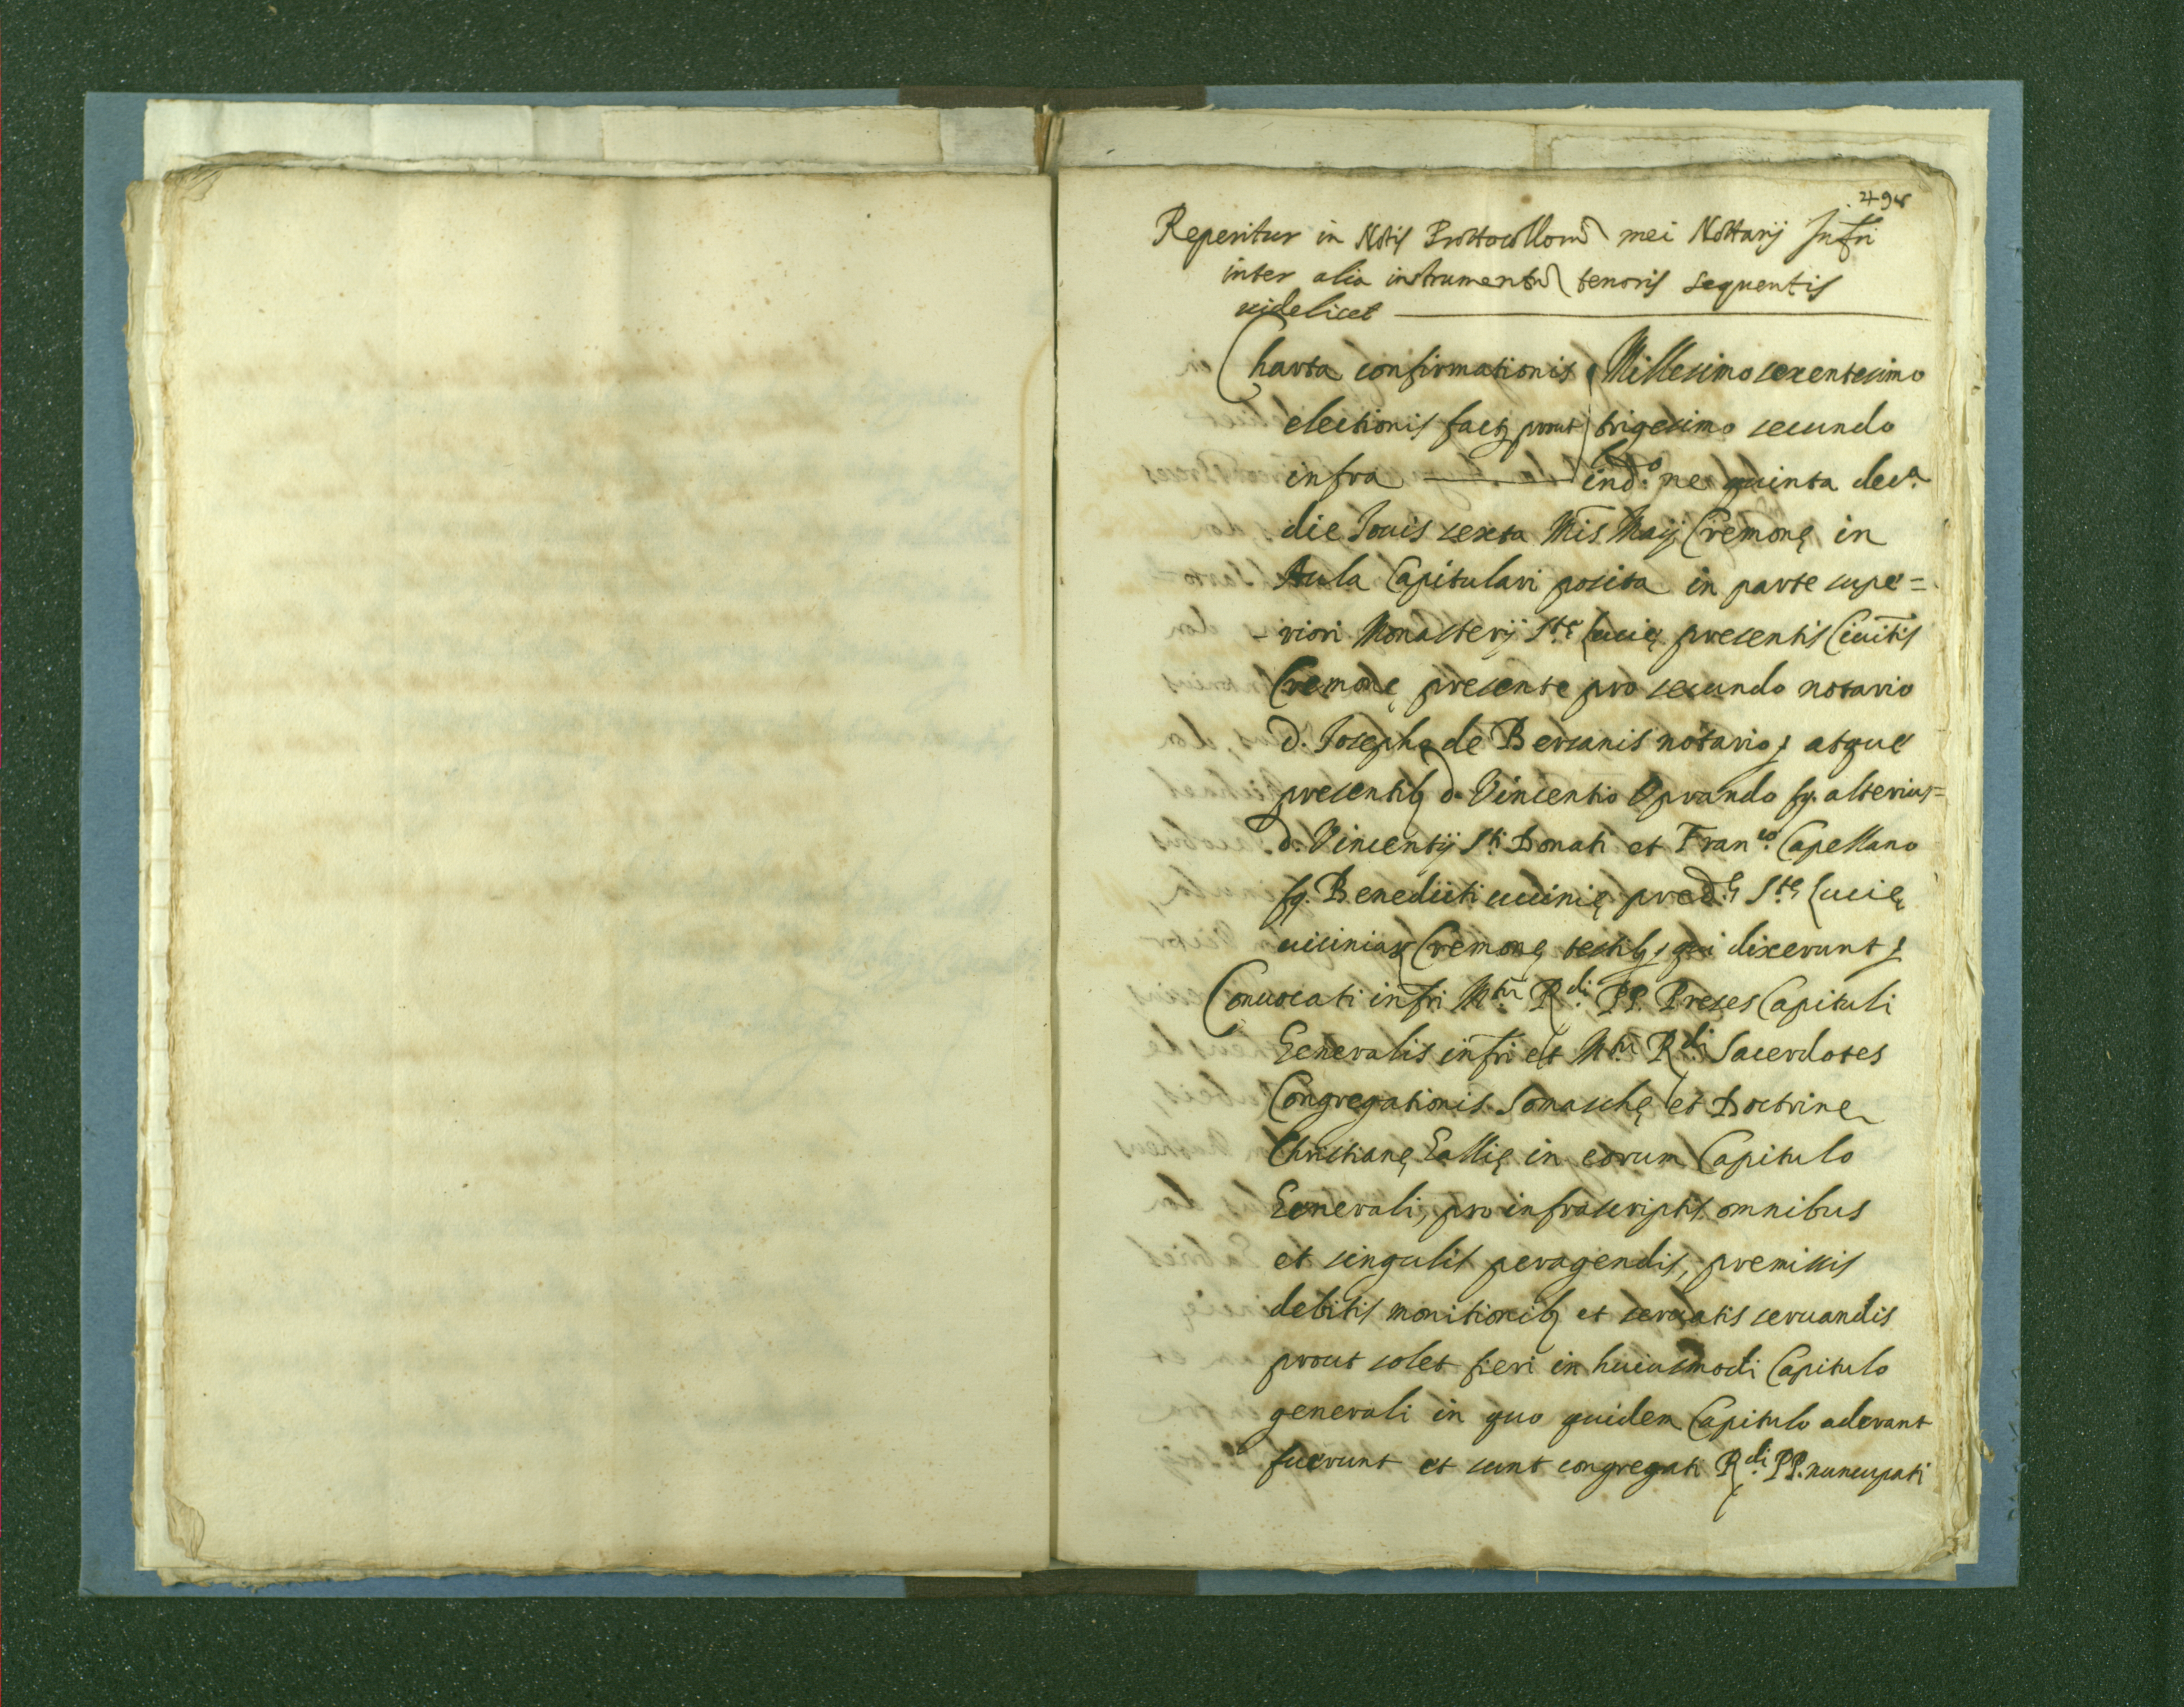 498
Reperitur in Notis Prottocollorũ mei Nottarij Infri
inter alia instrumentũ tenoris sequentis
uidelicet
Charta confirmationis Millesimo sexentesimo
electionis factę prout trigesimo secundo
infra ind.ne quinta dec.a
die Jouis sexta Mis Maij Cremonę in
Aula Capitulari posita in parte supe=
-riori Monasterij S.tę Lucię presentis Ciuitis
Cremonę presente pro secundo notario
D. Josepho de Bersanis notario, atque
presentib9 D. Vincentio Oprando fq. alterius
D. Vincentij S.ti Donati et Fran.co Capellano
fq. Benedicti uicinię pred.ę S.tę Lucię
uiciniar Cremonę testib9, qui dixerunt
Conuocati infri M.tũ R.di PP. Preses Capituli
Generalis infri et M.tũ R.di Sacerdotes
Congregationis Somaschę et Doctrinę
Christianę Gallię in eorum Capitulo
Generali, pro infrascriptis omnibus
et singulis peragendis, premissis
debitis monitionib9 et seruatis seruandis
prout solet fieri in huiusmodi Capitulo
generali in quo quidem Capitulo aderant
fuerunt et sunt congregati R.di PP. nuncupati